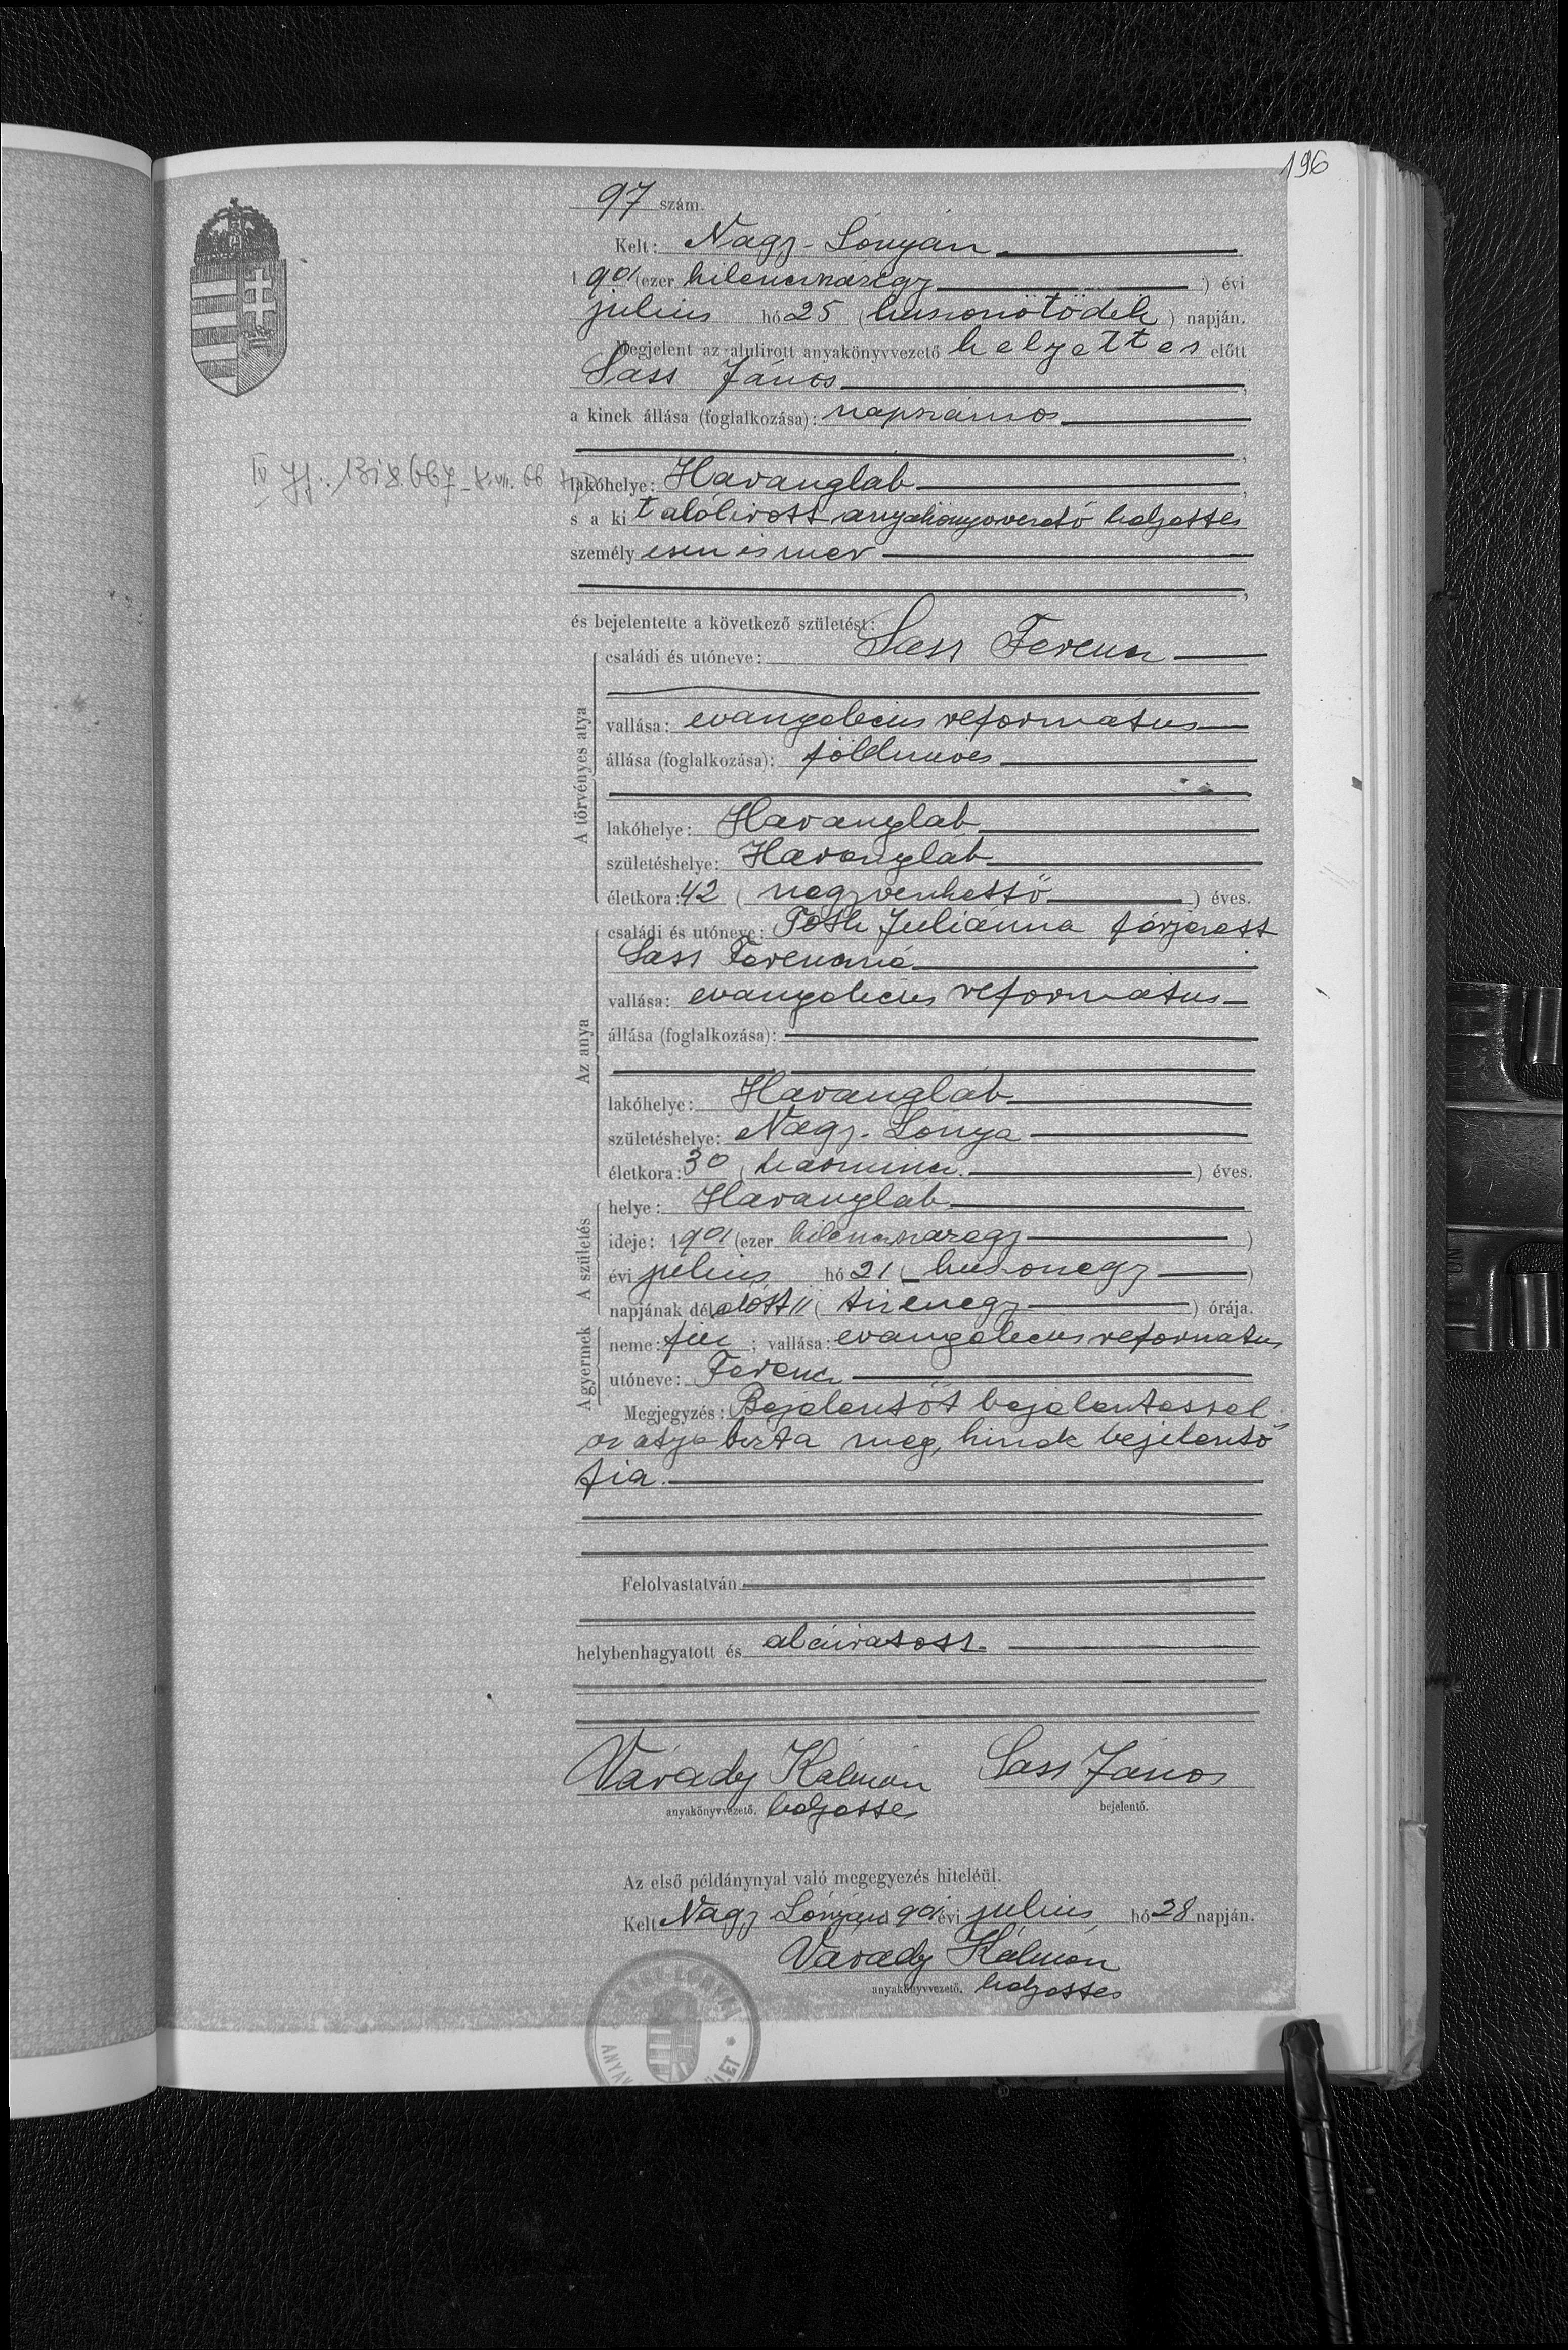 196
97 szám.
Kelt: Nagy-Lónyán
1901 (ezer kilencszázegy) évi
julius hó 25 (huszonötödik) napján.
Megjelent az alulirott anyakönyvvezető helyettes előtt
Sass János,
a kinek állása (foglalkozása): napszámos
,
lakóhelye: Harangláb,
s a kit alólirott anyakönyvvezető helyettes
személyesen ismer
,
és bejelentette a következő születést:
A törvényes atya
családi és utóneve: Sass Ferencz
vallása: evangelicus reformatus
állása (foglalkozása): földmives
lakóhelye: Harangláb
születéshelye: Harangláb
életkora: 42 (negyvenkettő) éves.
Az anya
családi és utóneve: Toth Julianna férjezett
Sass Ferenczné
vallása: evangelicus reformatus
állása (foglalkozása):
lakóhelye: Harangláb
születéshelye: Nagy-Lonya
életkora: 30 (harmincz) éves.
A születés
helye: Harangláb
ideje: 1901 (ezer kilenczszázegy)
évi julius hó 21 (huszonegy)
napjának délelőtt 11 (tizenegy) órája.
A gyermek
neme: fiu; vallása: evangelicus reformatus
utóneve: Ferencz
Megjegyzés: Bejelentőt bejelentéssel
az atya bizta meg, kinek bejelentő
fia.
Felolvastatván
helybenhagyatott és aláiratott.
Várady Kálmán Sass János
anyakönyvvezető. helyettes bejelentő.
Az első példánynyal való megegyezés hiteléül.
Kelt Nagy Lónyán 1901 évi julius hó 28 napján.
Várady Kálmán
anyakönyvvezető. helyettes